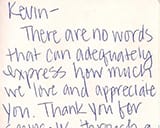 Kevin-
There are no words
that can adequately
express how much
we love and appreciate
you. Thank you for